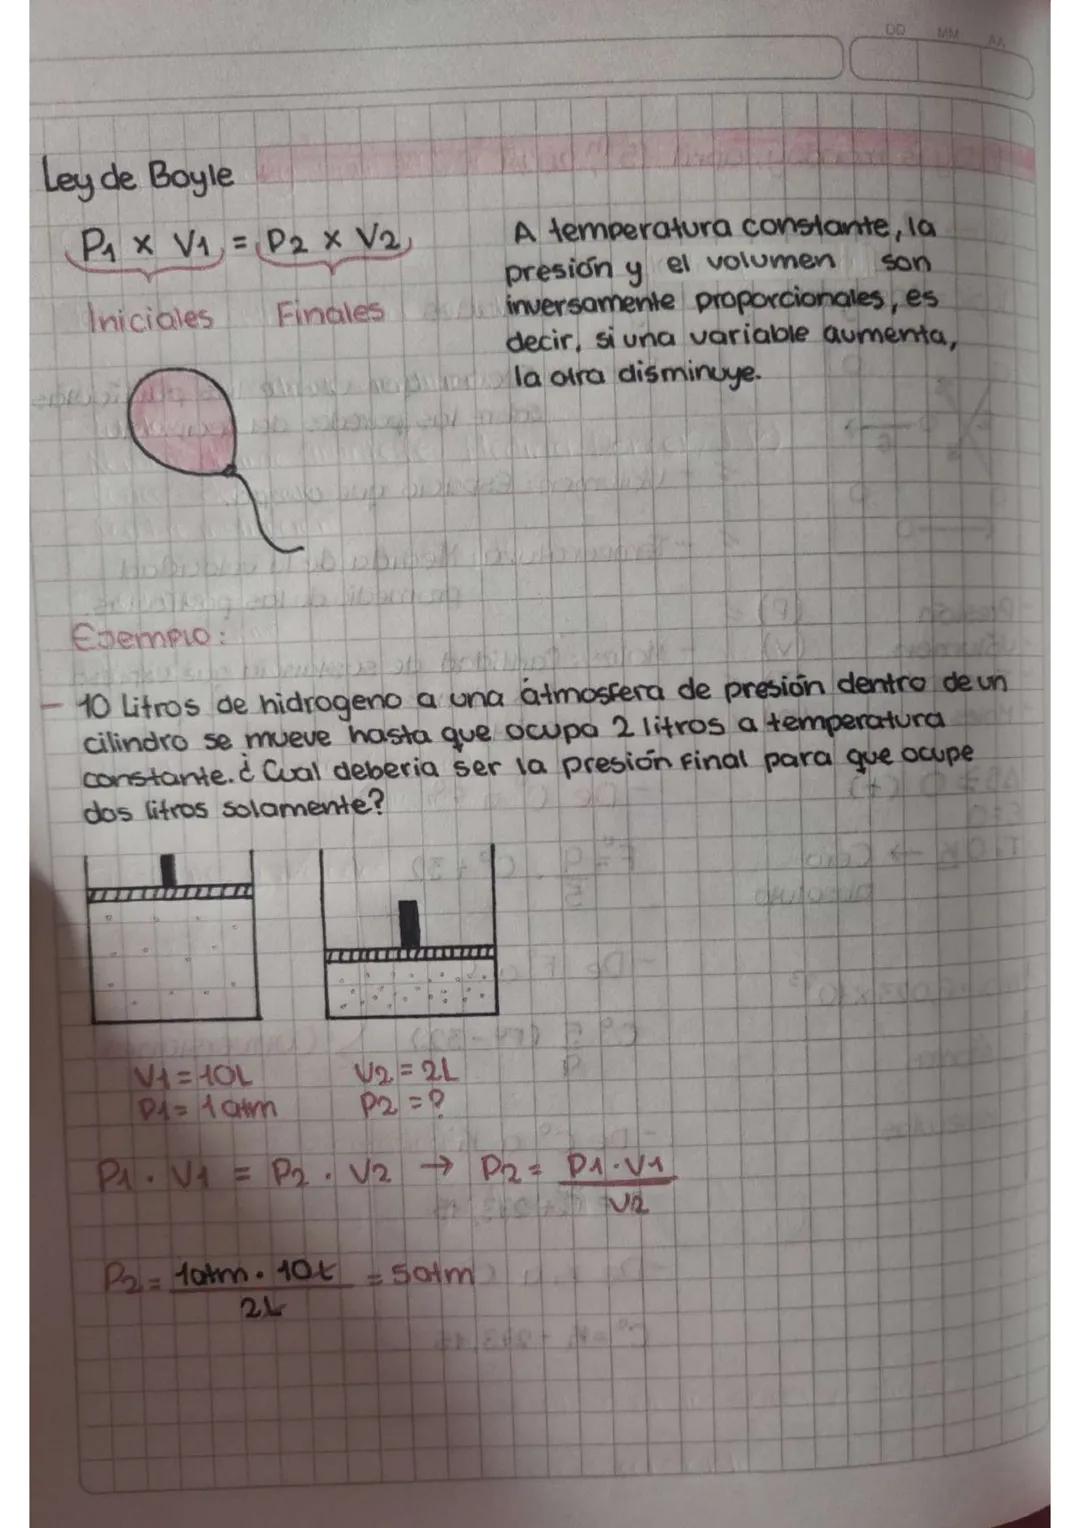 DD MM AA
Ley de Boyle
P1 x V1 = P2 x V2
Iniciales Finales
A temperatura constante, la
presión y el volumen son
inversamente proporcionales, es
decir, si una variable aumenta,
la otra disminuye.
Ejemplo:
- 10 Litros de hidrogeno a una átmosfera de presión dentro de un
cilindro se mueve hasta que ocupa 2 litros a temperatura
constante. ¿Cual deberia ser la presión final para que ocupe
dos litros solamente?
V1 = 10L V2 = 2L
P1 = 1atm P2 = ?
P1 . V1 = P2 . V2 → P2 = P1 . V1
V2
P2 = 1atm . 10L = 5atm
2L